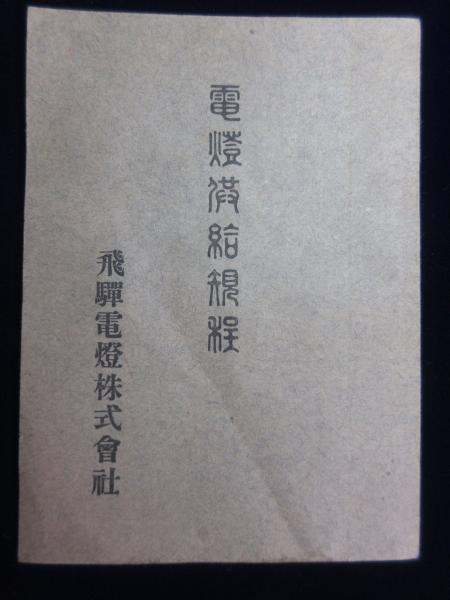 電燈供給規程
飛驒電燈株式會社